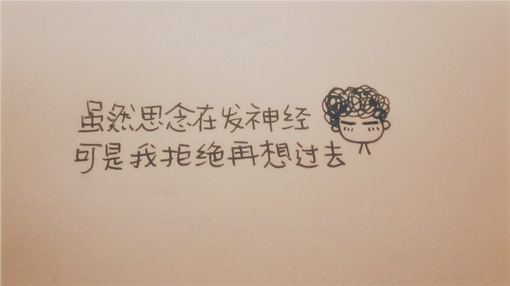 虽然思念在发神经
可是我拒绝再想过去